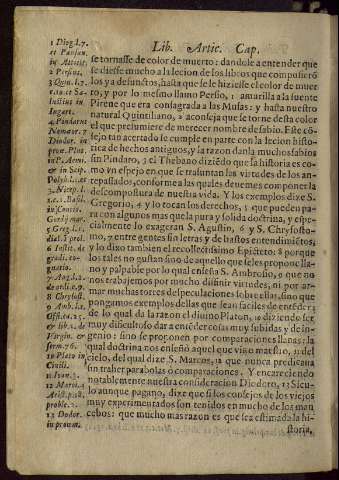 Lib. Artic. Cap.
se tornasse de color de muerto: dandole a entender que
se diesse mucho a la lecion de los libros que compusierõ
los ya defunctos, hasta que se le hiziesse el color de muer
to, y por lo mesmo llamo Persio, 2 amarilla a la fuente
Pirene que era consagrada a las Musas: y hasta nuestro
natural Quintiliano, 2 aconseja que se torne desta color
el que presumiere de merecer nombre de sabio. Este cõse
jo tan acertado se cumple en parte con la lecion histo
rica de hechos antiguos, y la razon danla muchos sabios
sin Pindaro, 3 el Thebano diziẽdo que la historia es co-
mo vn espejo en que se trasuntan las virtudes de los an-
tepassados, conforme a las quales deuemos componer la
descompostura de nuestra vida. Y los exemplos dize S.
Gregorio, 4 y lo tocan los derechos, 5 que pueden pa-
ra con algunos mas que la pura y solida doctrina, y espe-
cialmente lo exageran S. Agustin, 6 y S. Chrysosto-
mo, 7 entre gentes sin letras y de bastos entendimiẽtos,
y lo dixo tambien el recollectissimo Epicteto: à porque
los tales no gustan sino de aquello que se les propone lla-
no y palpable por lo qual enseña S. Ambrosio, 9 que no
nos trabajemos por mucho difinir virtudes, ni por ar-
mar muchas torres de especulaciones sobre ellas, sino que
pongamos exemplos dellas que sean faciles de entẽder:
de lo qual da la razon el diuino Platon, 10 diziendo ser
muy dificultoso dar a entẽder cosas muy subidas y de in-
genio: sino se proponen por comparaciones llanas: la
qual doctrina nos enseño aquel que vino maestro, 11 del
cielo, del qual dize S. Marcos, 12 que nunca predicaua
sin traher parabolas ò comparaciones. Y encareciendo
notablemente nuestra consideracion Diodoro, 13 Sicu-
lo aunque pagano, dize que si los consejos de los viejos
muy experimentados son tenidos en mucho de los man
cebos: que mucho mas razon es que sea estimada la hi-
storia,
1 Diog. l. 7.
2 Persius.
3 Quin. l. 7.
4 Pindarus
Nemear. 7
Diodor. in
7 Aug. l. 2.
8 Chrysost.
9 Amb. l. 1.
Offic. c. 25.
& lib. 2. de
Virgin. &
serm. 76.
10 Plato in
Ciuili.
11 Ioan. 3.
12 Marci. 4
Arist. part.
proble. 2.
13 Diodor.
in proœm.